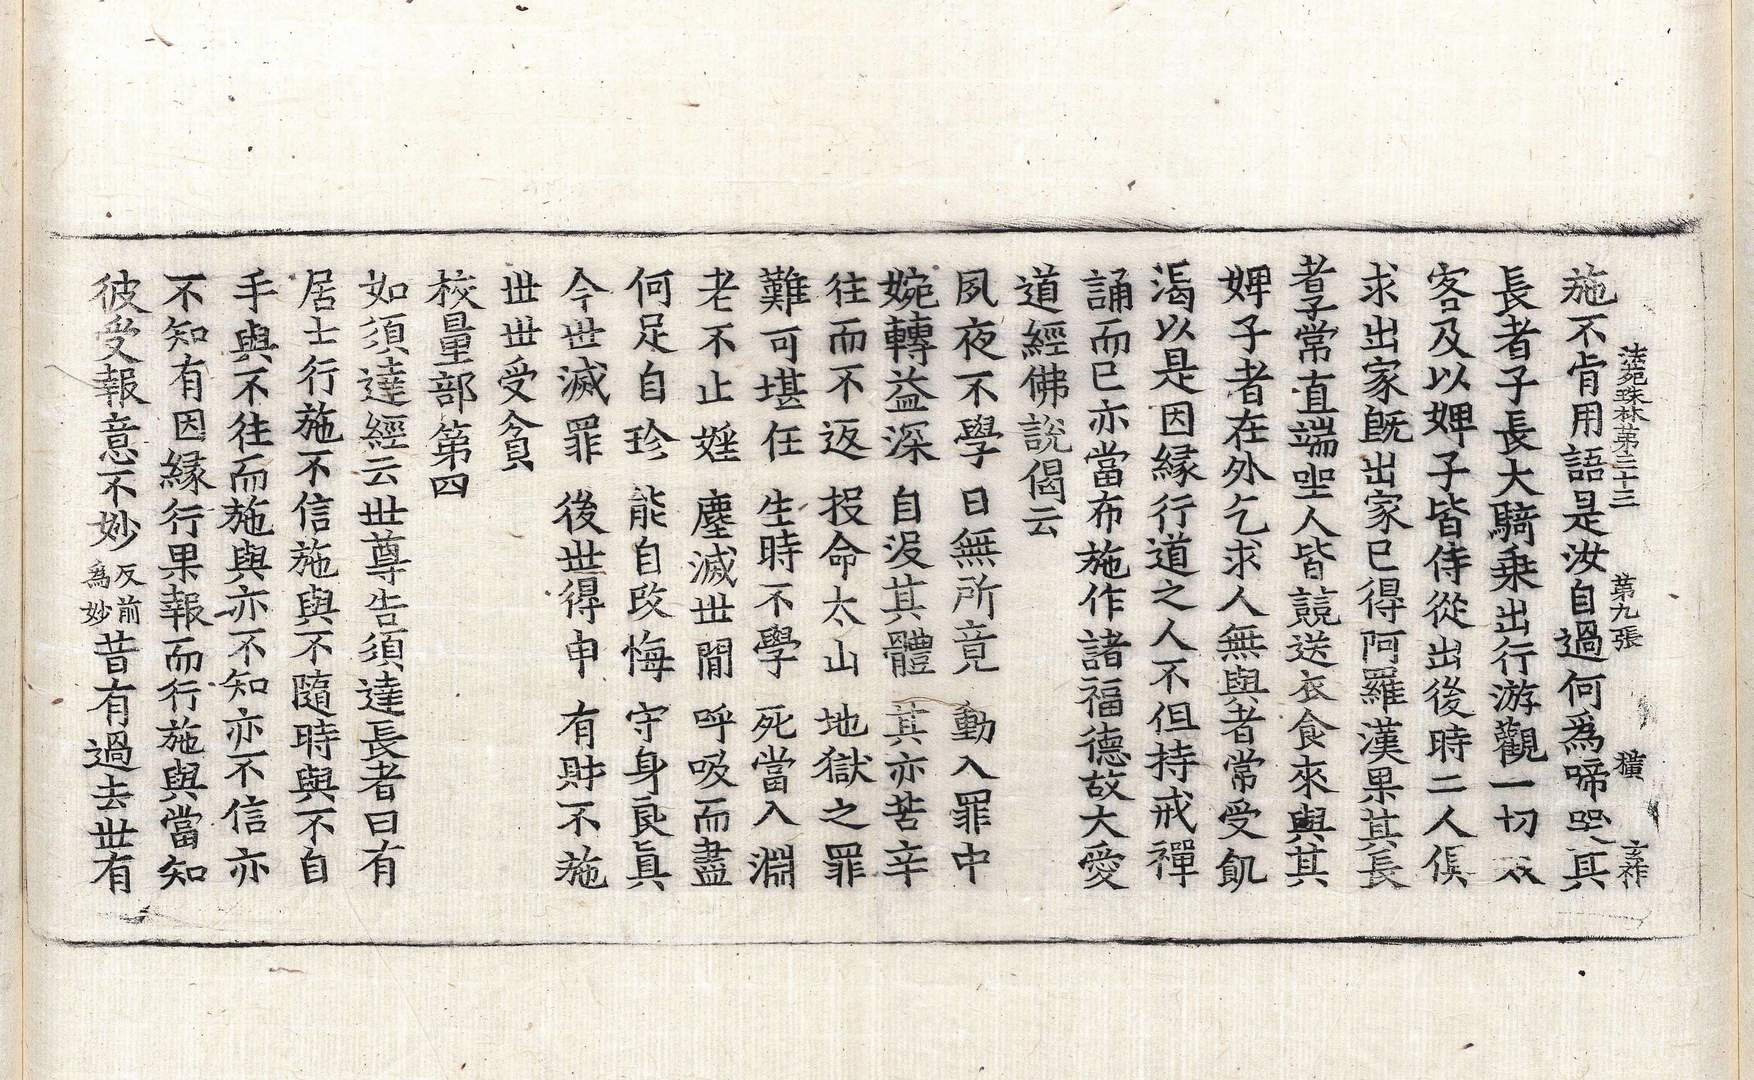 法苑珠林第三十三 第九張 橫 玄祚
施不肯用語是汝自過何為啼哭其
長者子長大騎乗出行游觀一切
客及以婢子皆侍從出後時二人俱
求出家旣出家已得阿羅漢果其長
者子常直端坐人皆競送衣食來與其
婢子者在外乞求人無與者常受飢
渴以是因縁行道之人不但持戒禪
誦而已亦當布施作諸福德故大愛
道經佛說偈云
夙夜不學 日無所竟 動入罪中
婉轉益深 自沒其體 其亦苦辛
往而不返 投命太山 地獄之罪
難可堪任 生時不學 死當入淵
老不止婬 塵滅世閒 呼吸而盡
何足自珍 能自改悔 守身良眞
今世滅罪 後世得申 有財不施
世世受貧
校量部第四
如須達經云世尊告須達長者曰有
居士行施不信施與不隨時與不自
手與不往而施與亦不知亦不信亦
不知有因縁行果報而行施與當知
彼受報意不妙反前為妙昔有過去世有